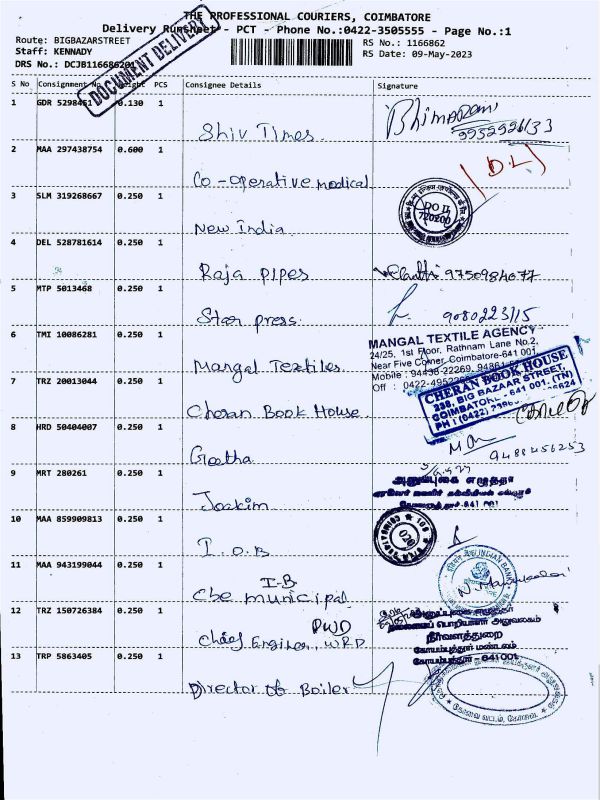 THE PROFESSIONAL COURIERS, COIMBATORE
Delivery Runsheet - PCT - Phone No.:0422-3505555 - Page No.:1
Route: BIGBAZARSTREET
Staff: KENNADY
DRS No.: DCJB116686201
RS No.: 1166862
RS Date: 09-May-2023
DOCUMENT DELIVERY
S No Consignment No Weight PCS Consignee Details Signature
1 GDR 5298451 0.130 1
Shiv Times
Bhimaram
9952926133
2 MAA 297438754 0.600 1
Co-operative medical
DL
3 SLM 319268667 0.250 1
New India
4 DEL 528781614 0.250 1
Raja Pipes
9750984077
5 MTP 5013468 0.250 1
Star press
9080223115
6 TMI 10086281 0.250 1
Mangal Textiles
MANGAL TEXTILE AGENCY
24/25, 1st Floor, Rathnam Lane No.2,
Near Five Corner, Coimbatore-641 001
Mobile : 94438-22269,
Off : 0422-
7 TRZ 20013044 0.250 1
Cheran Book House
CHERAN BOOK HOUSE
238, BIG BAZAAR STREET,
COIMBATORE - 641 001. (TN)
PH : (0422)
8 HRD 50404007 0.250 1
Geetha
9488456253
9 MRT 280261 0.250 1
Joakim
10 MAA 859909813 0.250 1
I.O.B
11 MAA 943199044 0.250 1
I-B
Cbe municipal
INDIAN BANK
12 TRZ 150726384 0.250 1
PWD
Chief Engineer, WRD
நீர்வளத்துறை
கோயம்புத்தூர் மண்டலம்
கோயம்புத்தூர் - 641001
13 TRP 5863405 0.250 1
Director of Boiler